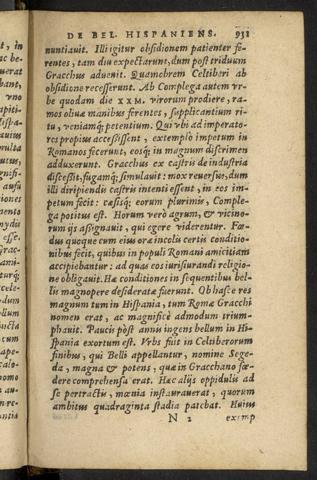 DE BEL. HISPANIENS. 931
nuntiauit. Illi igitur obsidionem patienter fe-
rentes, tam diu expectarunt, dum post triduum
Gracchus aduenit. Quamobrem Celtiberi ab
obsidione recesserunt. Ab Complega autem vr-
be quodam die XXM. virorum prodiere, ra-
mos oliuæ manibus ferentes, supplicantium ri-
tu, veniamq; petentium. Qui vbi ad imperato-
res propius accesissent, extemplò impetum in
Romanos fecerunt, eosq; in magnum discrimen
adduxerunt. Gracchus ex castris de industria
discesit, fugamq; simulauit: mox reuersus, dum
illi diripiendis castris intenti essent, in eos im-
petum fecit: cæsisq; eorum plurimis, Comple-
ga potitus est. Horum verò agrum, & vicino-
rum ijs assignauit, qui egere viderentur. Fœ-
dus quoque cum eius oræ incolis certis conditio-
nibus fecit, quibus in populi Romani amicitiam
accipiebantur: ad quas eos iurisiurandi religio-
ne obligauit. Hæ conditiones in sequentibus bel-
lis magnopere desideratæ fuerunt. Ob hasce res
magnum tum in Hispania, tum Romæ Gracchi
nomen erat, ac magnificè admodum trium-
phauit. Paucis pòst annis ingens bellum in Hi-
spania exortum est. Vrbs fuit in Celtiberorum
finibus, qui Belli appellantur, nomine Sege-
da, magna & potens, quæ in Gracchano fœ-
dere comprehensa erat. Hæc alijs oppidulis ad
se pertractis, mœnia instaurauerat, quorum
ambitus quadraginta stadia patebat. Huius
N 2 exemp